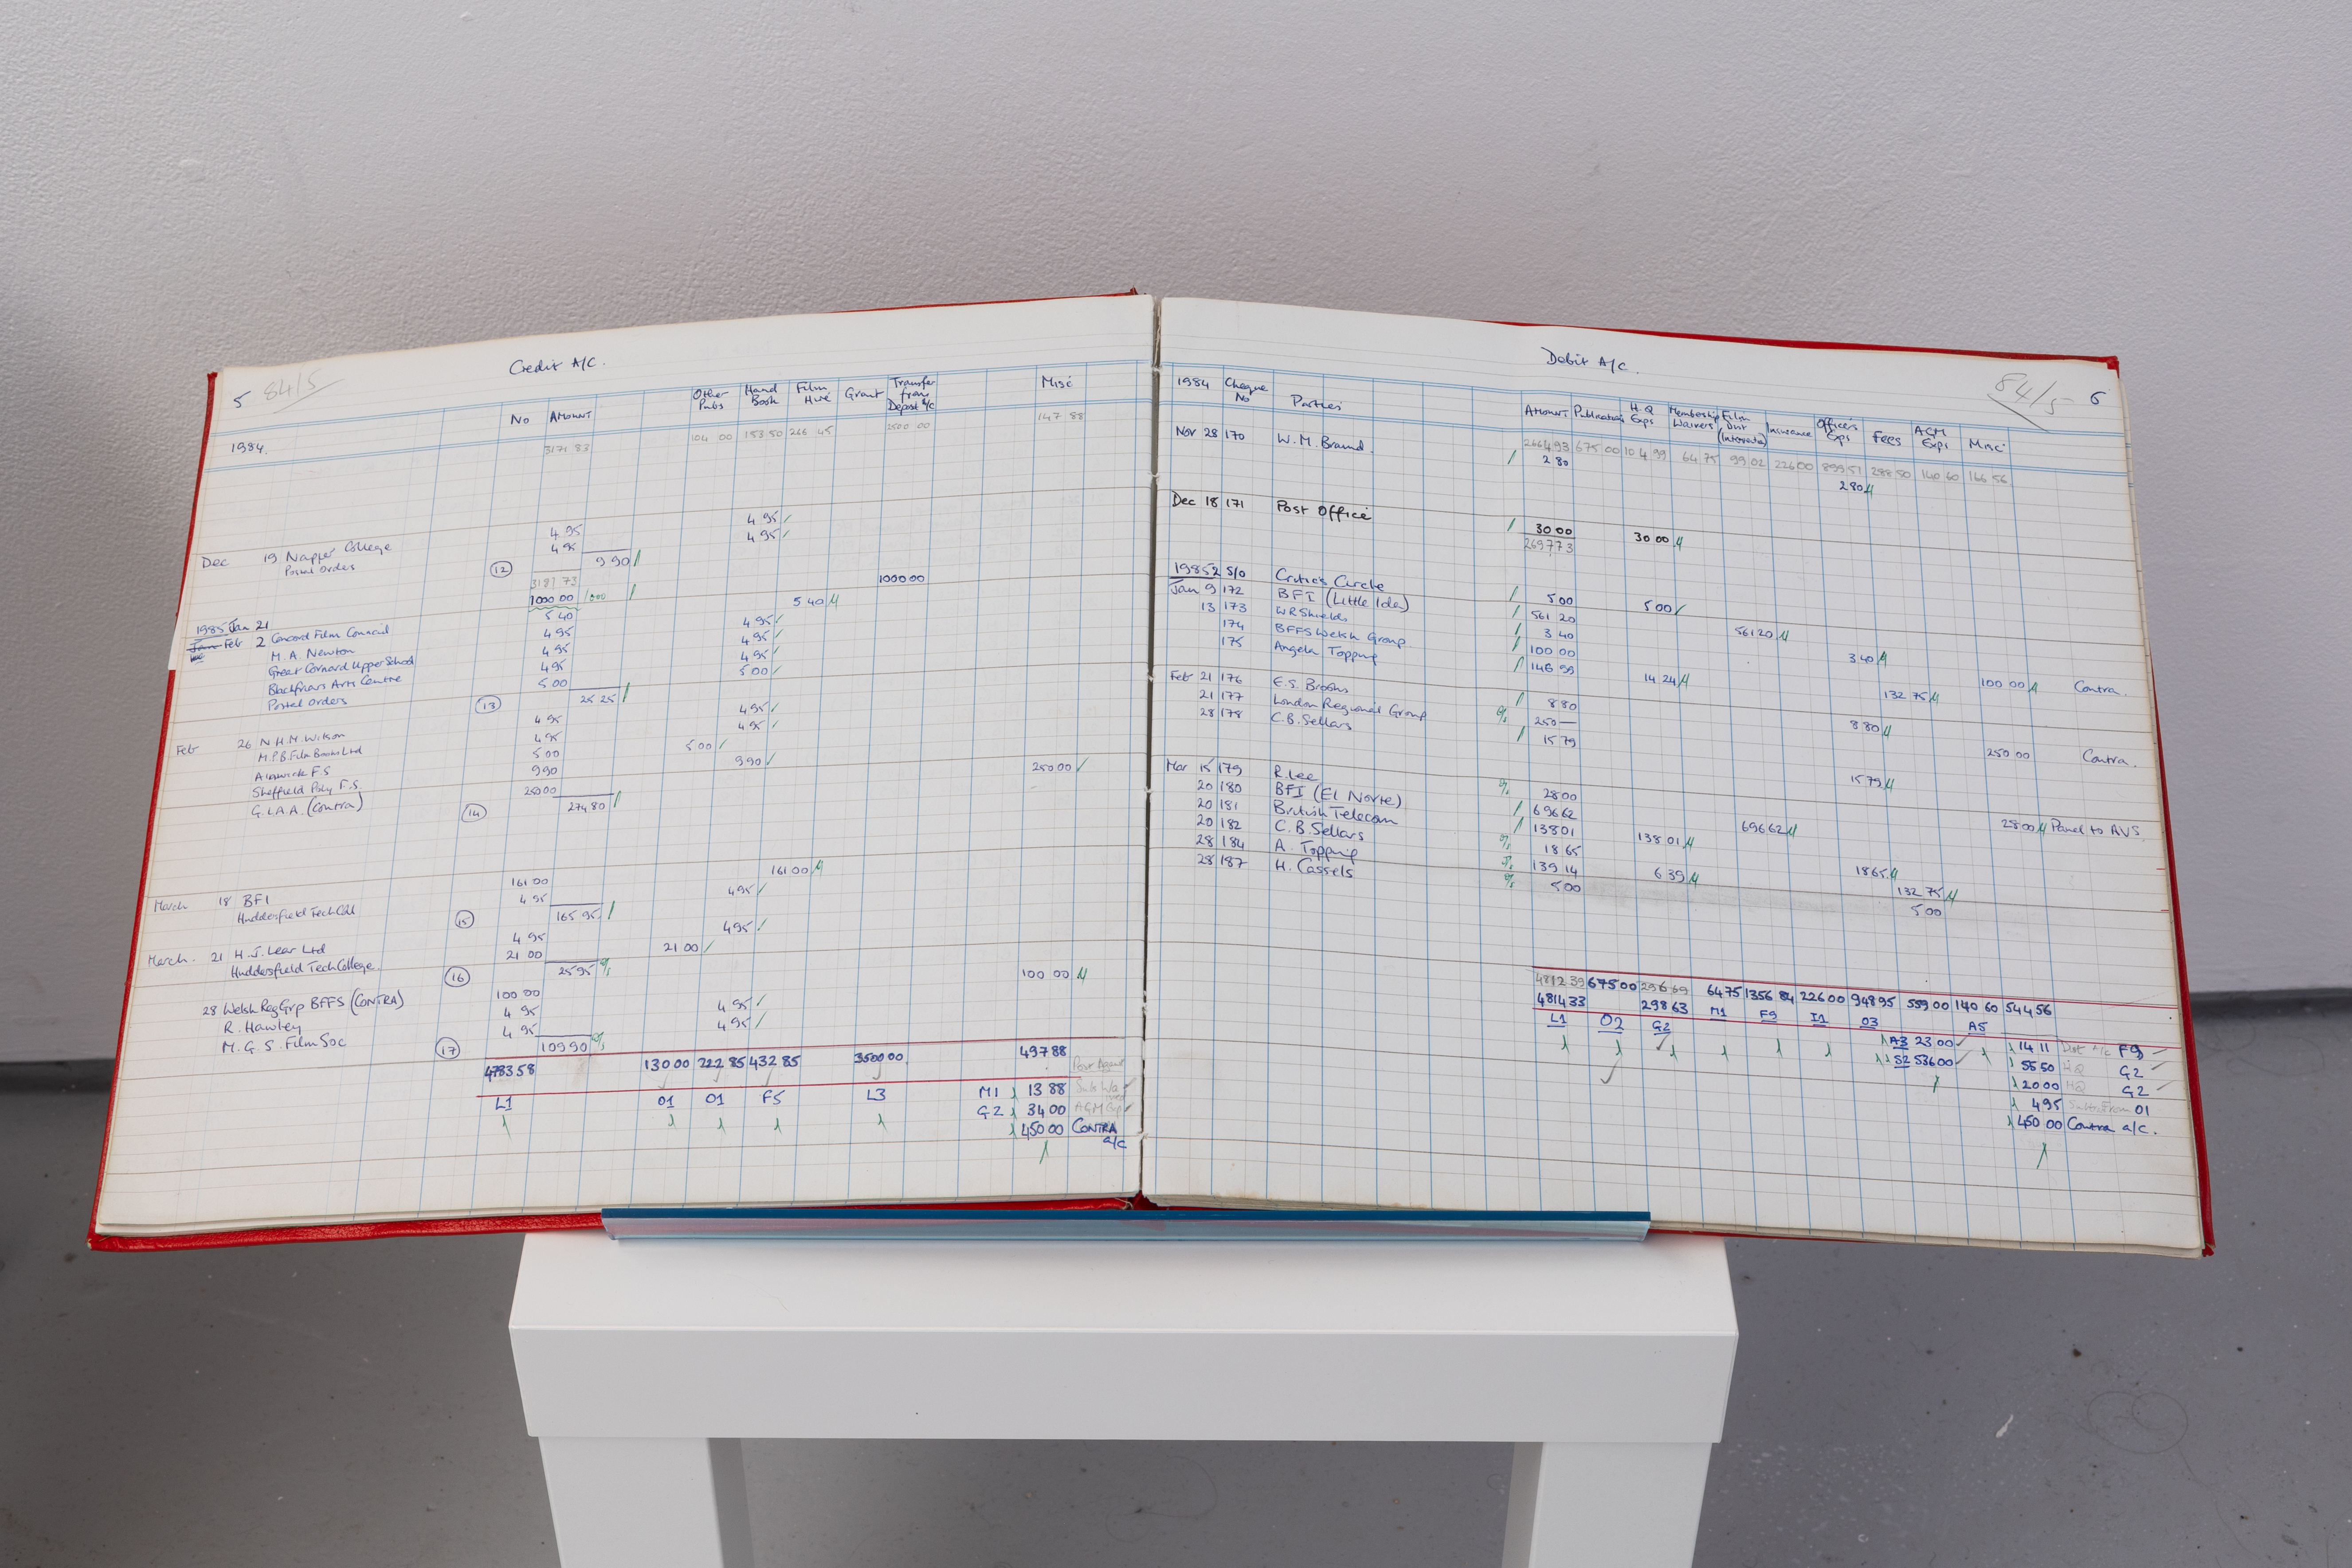 5 84/5
Credit A/C.
No Amount Other Pubs Hand Book Film Hire Grant Transfer from Deposit A/c Misc
1984. 3171 83 104 00 153 50 266 45 2500 00 147 88
4 95 4 95
Dec 19 Napier College 4 95 4 95
Postal Orders 12 9 90
3181 73
1000 00 1000 1000 00
1985 Jan 21 5 40 5 40
Feb 2 Concord Film Council 4 95 4 95
M. A. Newton 4 95 4 95
Great Cornard Upper School 4 95 4 95
Blackfriars Arts Centre 5 00 5 00
Postal Orders 13 25 25
4 95 4 95
Feb 26 N.H.M. Wilson 4 95 4 95
M.P.B. Film Books Ltd 5 00 5 00
Alnwick F.S 9 90 9 90
Sheffield Poly F.S. 250 00 250 00
G.L.A.A. (Contra) 14 274 80
161 00 161 00
March 18 BFI 4 95 4 95
Huddersfield Tech Coll 15 165 95
4 95 4 95
March. 21 H.J. Lear Ltd 21 00 21 00
Huddersfield Tech College. 16 25 95
100 00 100 00
28 Welsh Reg Grp BFFS (CONTRA) 4 95 4 95
R. Hawley 4 95 4 95
M. G. S. Film Soc 17 109 90
4783 58 130 00 222 85 432 85 3500 00 497 88
L1 O1 O1 F5 L3 M1 13 88
G2 34 00
450 00 CONTRA a/c
Debit A/C.
84/5 6
1984 Cheque No Parties Amount Publications H.Q Exps Membership Waivers Film Unit Insurance Officers Exps Fees AGM Exps Misc
2664 93 675 00 104 99 64 75 99 02 226 00 899 51 288 50 140 60 166 56
Nov 28 170 W. M. Brand. 2 80 2 80
Dec 18 171 Post Office 30 00 30 00
2697 73
1985 2 S/O Critic's Circle 5 00 5 00
Jan 9 172 BFI (Little Ida) 561 20 561 20
13 173 W R Shields 3 40 3 40
174 BFFS Welsh Group 100 00 100 00 Contra.
175 Angela Topping 146 99 14 24 132 75
Feb 21 176 E.S. Brooks 8 80 8 80
21 177 London Regional Group 250 — 250 00 Contra.
28 178 C.B. Sellars 15 79 15 79
Mar 15 179 R. Lee 28 00 28 00 Panel to AVS.
20 180 BFI (El Norte) 696 62 696 62
20 181 British Telecom 138 01 138 01
20 182 C. B. Sellars 18 65 18 65
28 184 A. Topping 139 14 6 39 132 75
28 187 H. Cassels 5 00 5 00
4812 39 675 00 296 69 64 75 1356 84 226 00 948 95 559 00 140 60 544 56
4814 33 298 63
L1 O2 G2 M1 F9 I1 O3 A5
A3 23 00 14 11 Dist A/c F9
S2 536 00 55 50 HQ G2
20 00 HQ G2
4 95 O1
450 00 Contra a/c.